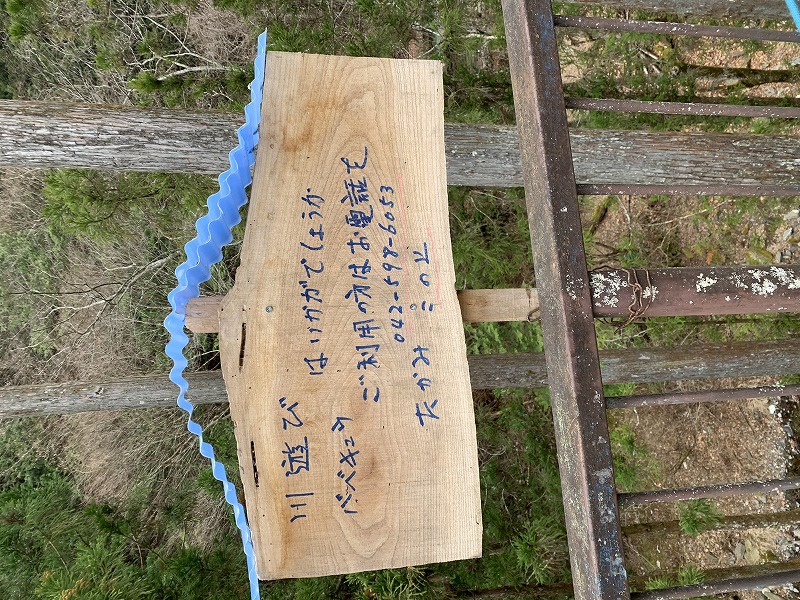 川遊び
はいかがでしょうか
バベキュウ
ご利用の方はお電話を
042-598-6053
たかみ この上